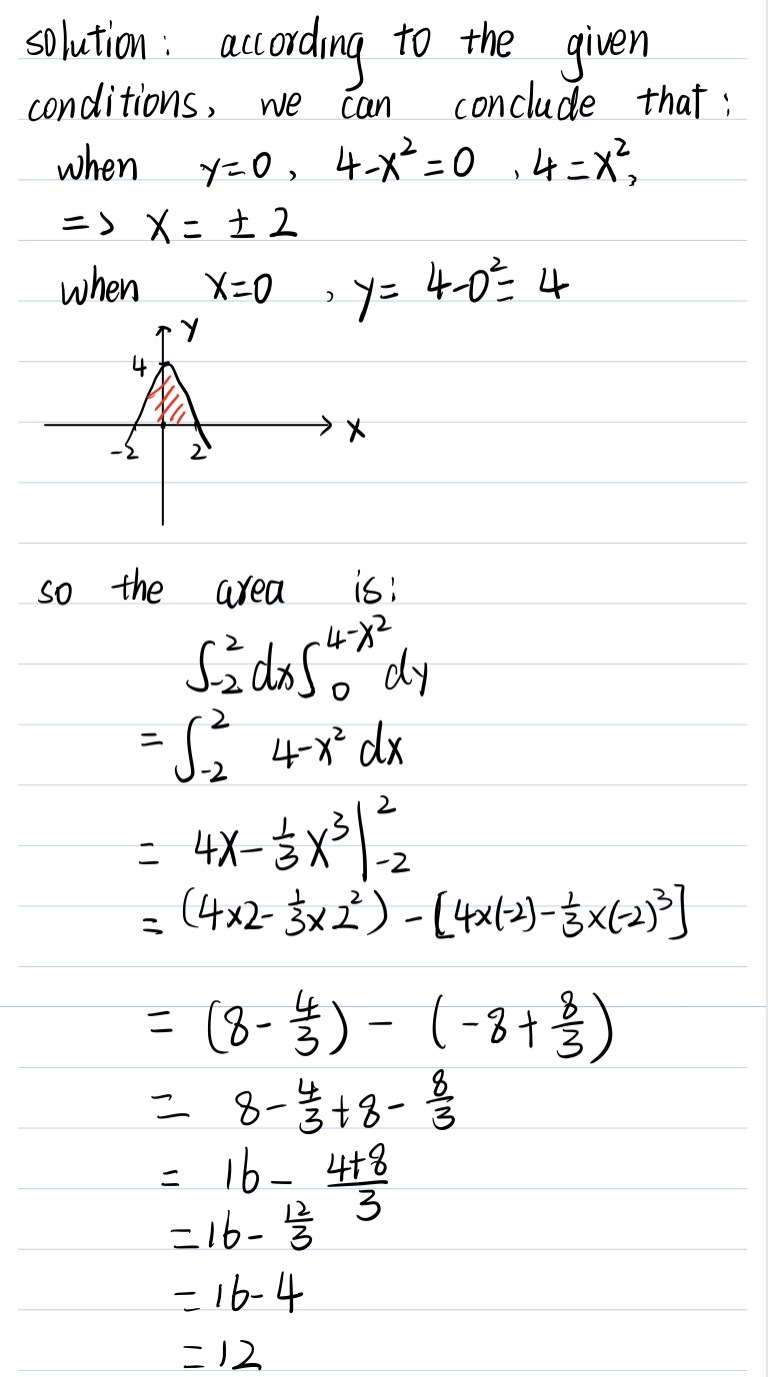 solution: according to the given
conditions, we can conclude that:
when y=0, 4-x²=0, 4=x²,
=> x = ± 2
when x=0, y= 4-0²= 4
y
4
x
-2 2
so the area is:
∫₋₂² dx ∫₀^(4-x²) dy
= ∫₋₂² 4-x² dx
= 4x - 1/3 x³ |₋₂²
= (4×2 - 1/3 × 2²) - [4×(-2) - 1/3 × (-2)³]
= (8 - 4/3) - (-8 + 8/3)
= 8 - 4/3 + 8 - 8/3
= 16 - (4+8)/3
= 16 - 12/3
= 16 - 4
= 12